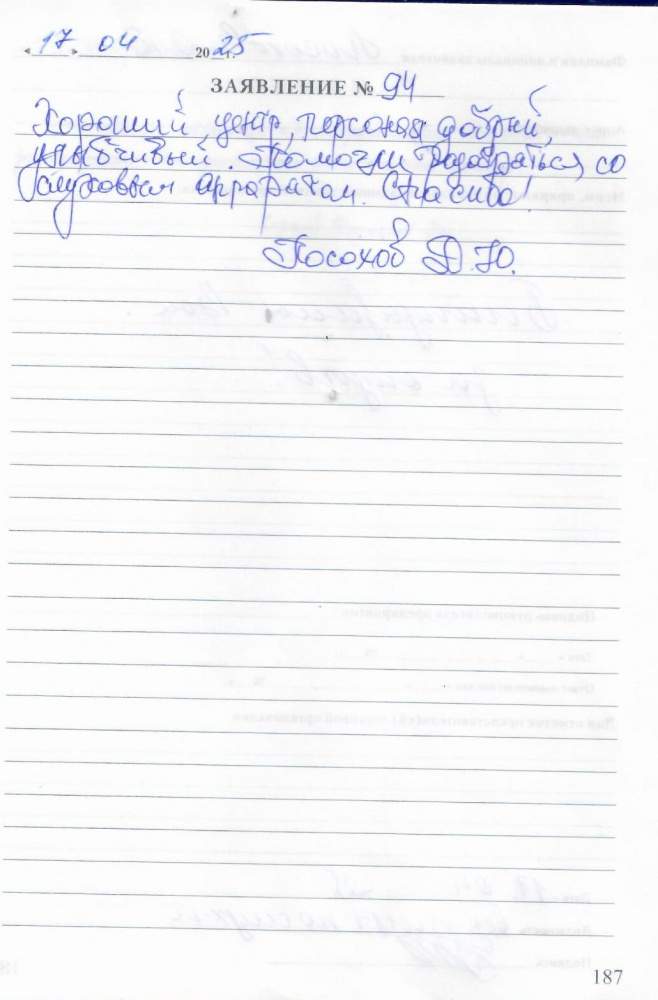 « 17 » 04 2025 г.
ЗАЯВЛЕНИЕ № 94
Хороший центр, персонал добрый,
улыбчивый. Помогли разобраться со
слуховым аппаратом. Спасибо!
Посохов Д.Ю.
187